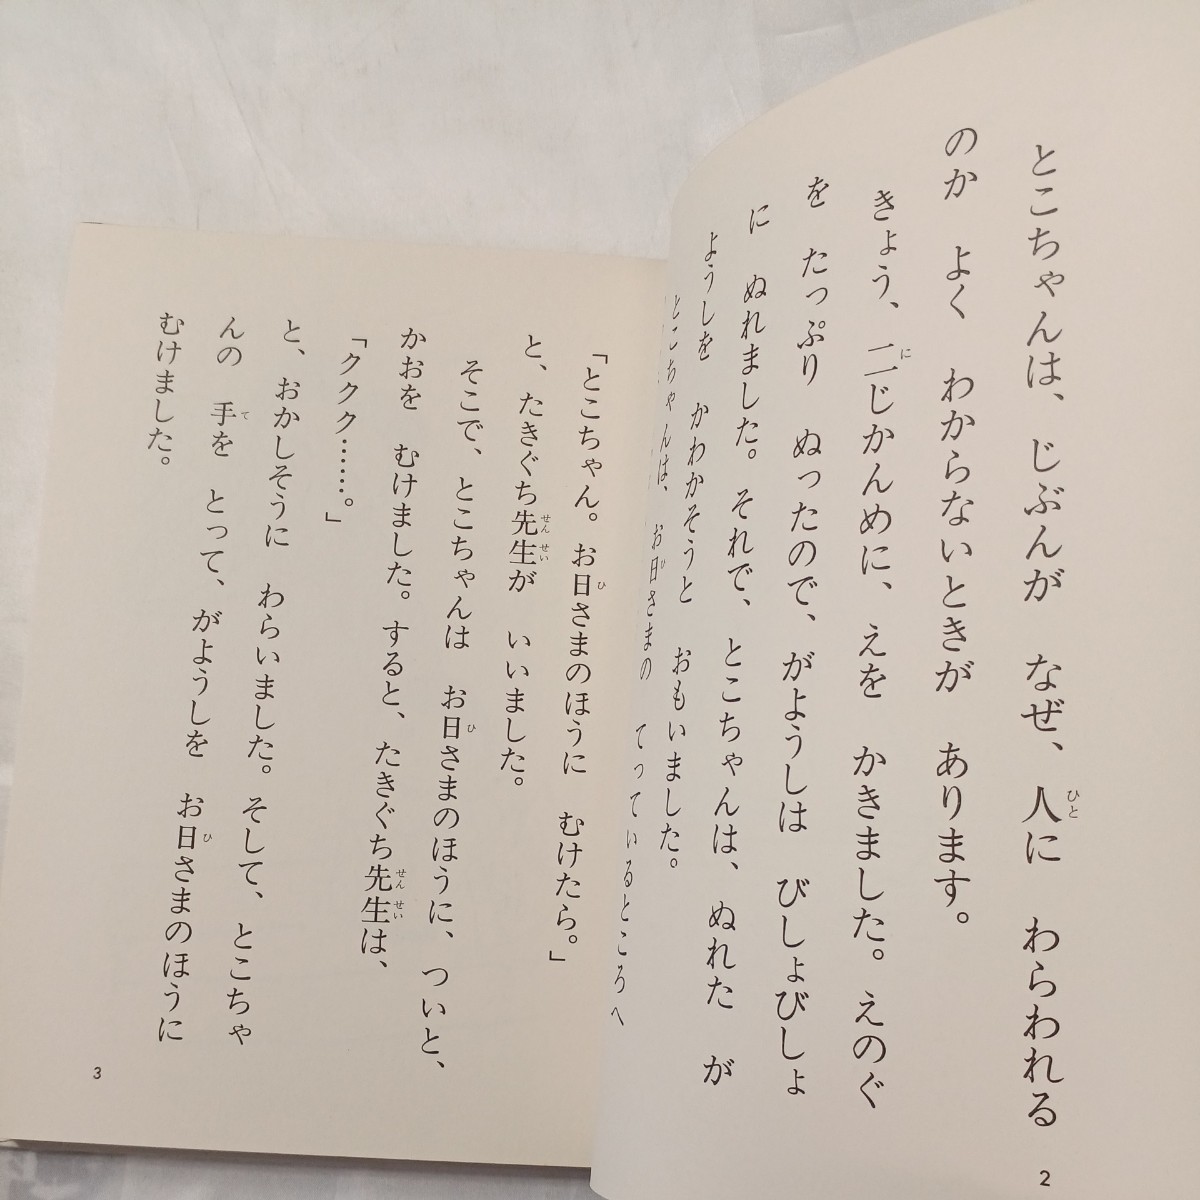 とこちゃんは、じぶんが なぜ、人に わらわれる
のか よく わからないときが あります。
きょう、二じかんめに、えを かきました。えのぐ
を たっぷり ぬったので、がようしは びしょびしょ
に ぬれました。それで、とこちゃんは、ぬれた が
ようしを かわかそうと おもいました。
とこちゃんは、お日さまの てっているところへ
2
「とこちゃん。お日さまのほうに むけたら。」
と、たきぐち先生が いいました。
そこで、とこちゃんは お日さまのほうに、ついと、
かおを むけました。すると、たきぐち先生は、
「ククク……。」
と、おかしそうに わらいました。そして、とこちゃ
んの 手を とって、がようしを お日さまのほうに
むけました。
3